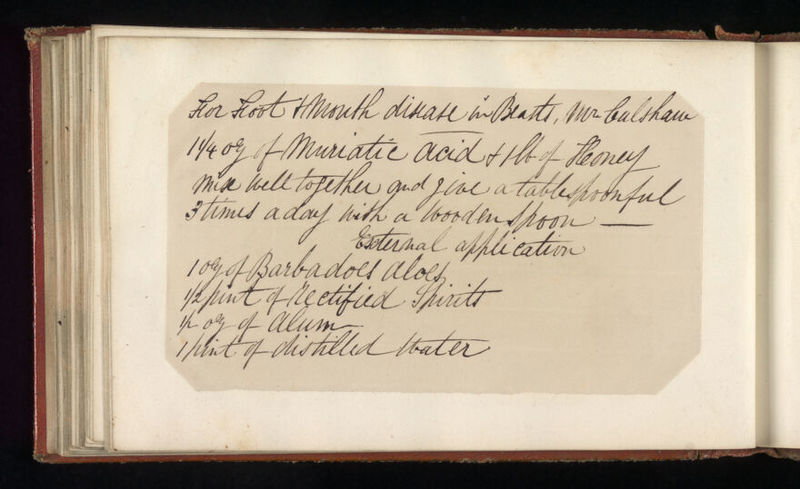 For Foot & Mouth disease in Beasts, Mr Culshaw
1 1/4 oz of Muriatic acid & 1 lb of Honey
mix well together and give a tablespoonful
3 times a day with a wooden spoon —
External application
1 oz of Barbadoes aloes
1/2 pint of rectified Spirits
1/2 oz of alum
1 pint of distilled Water